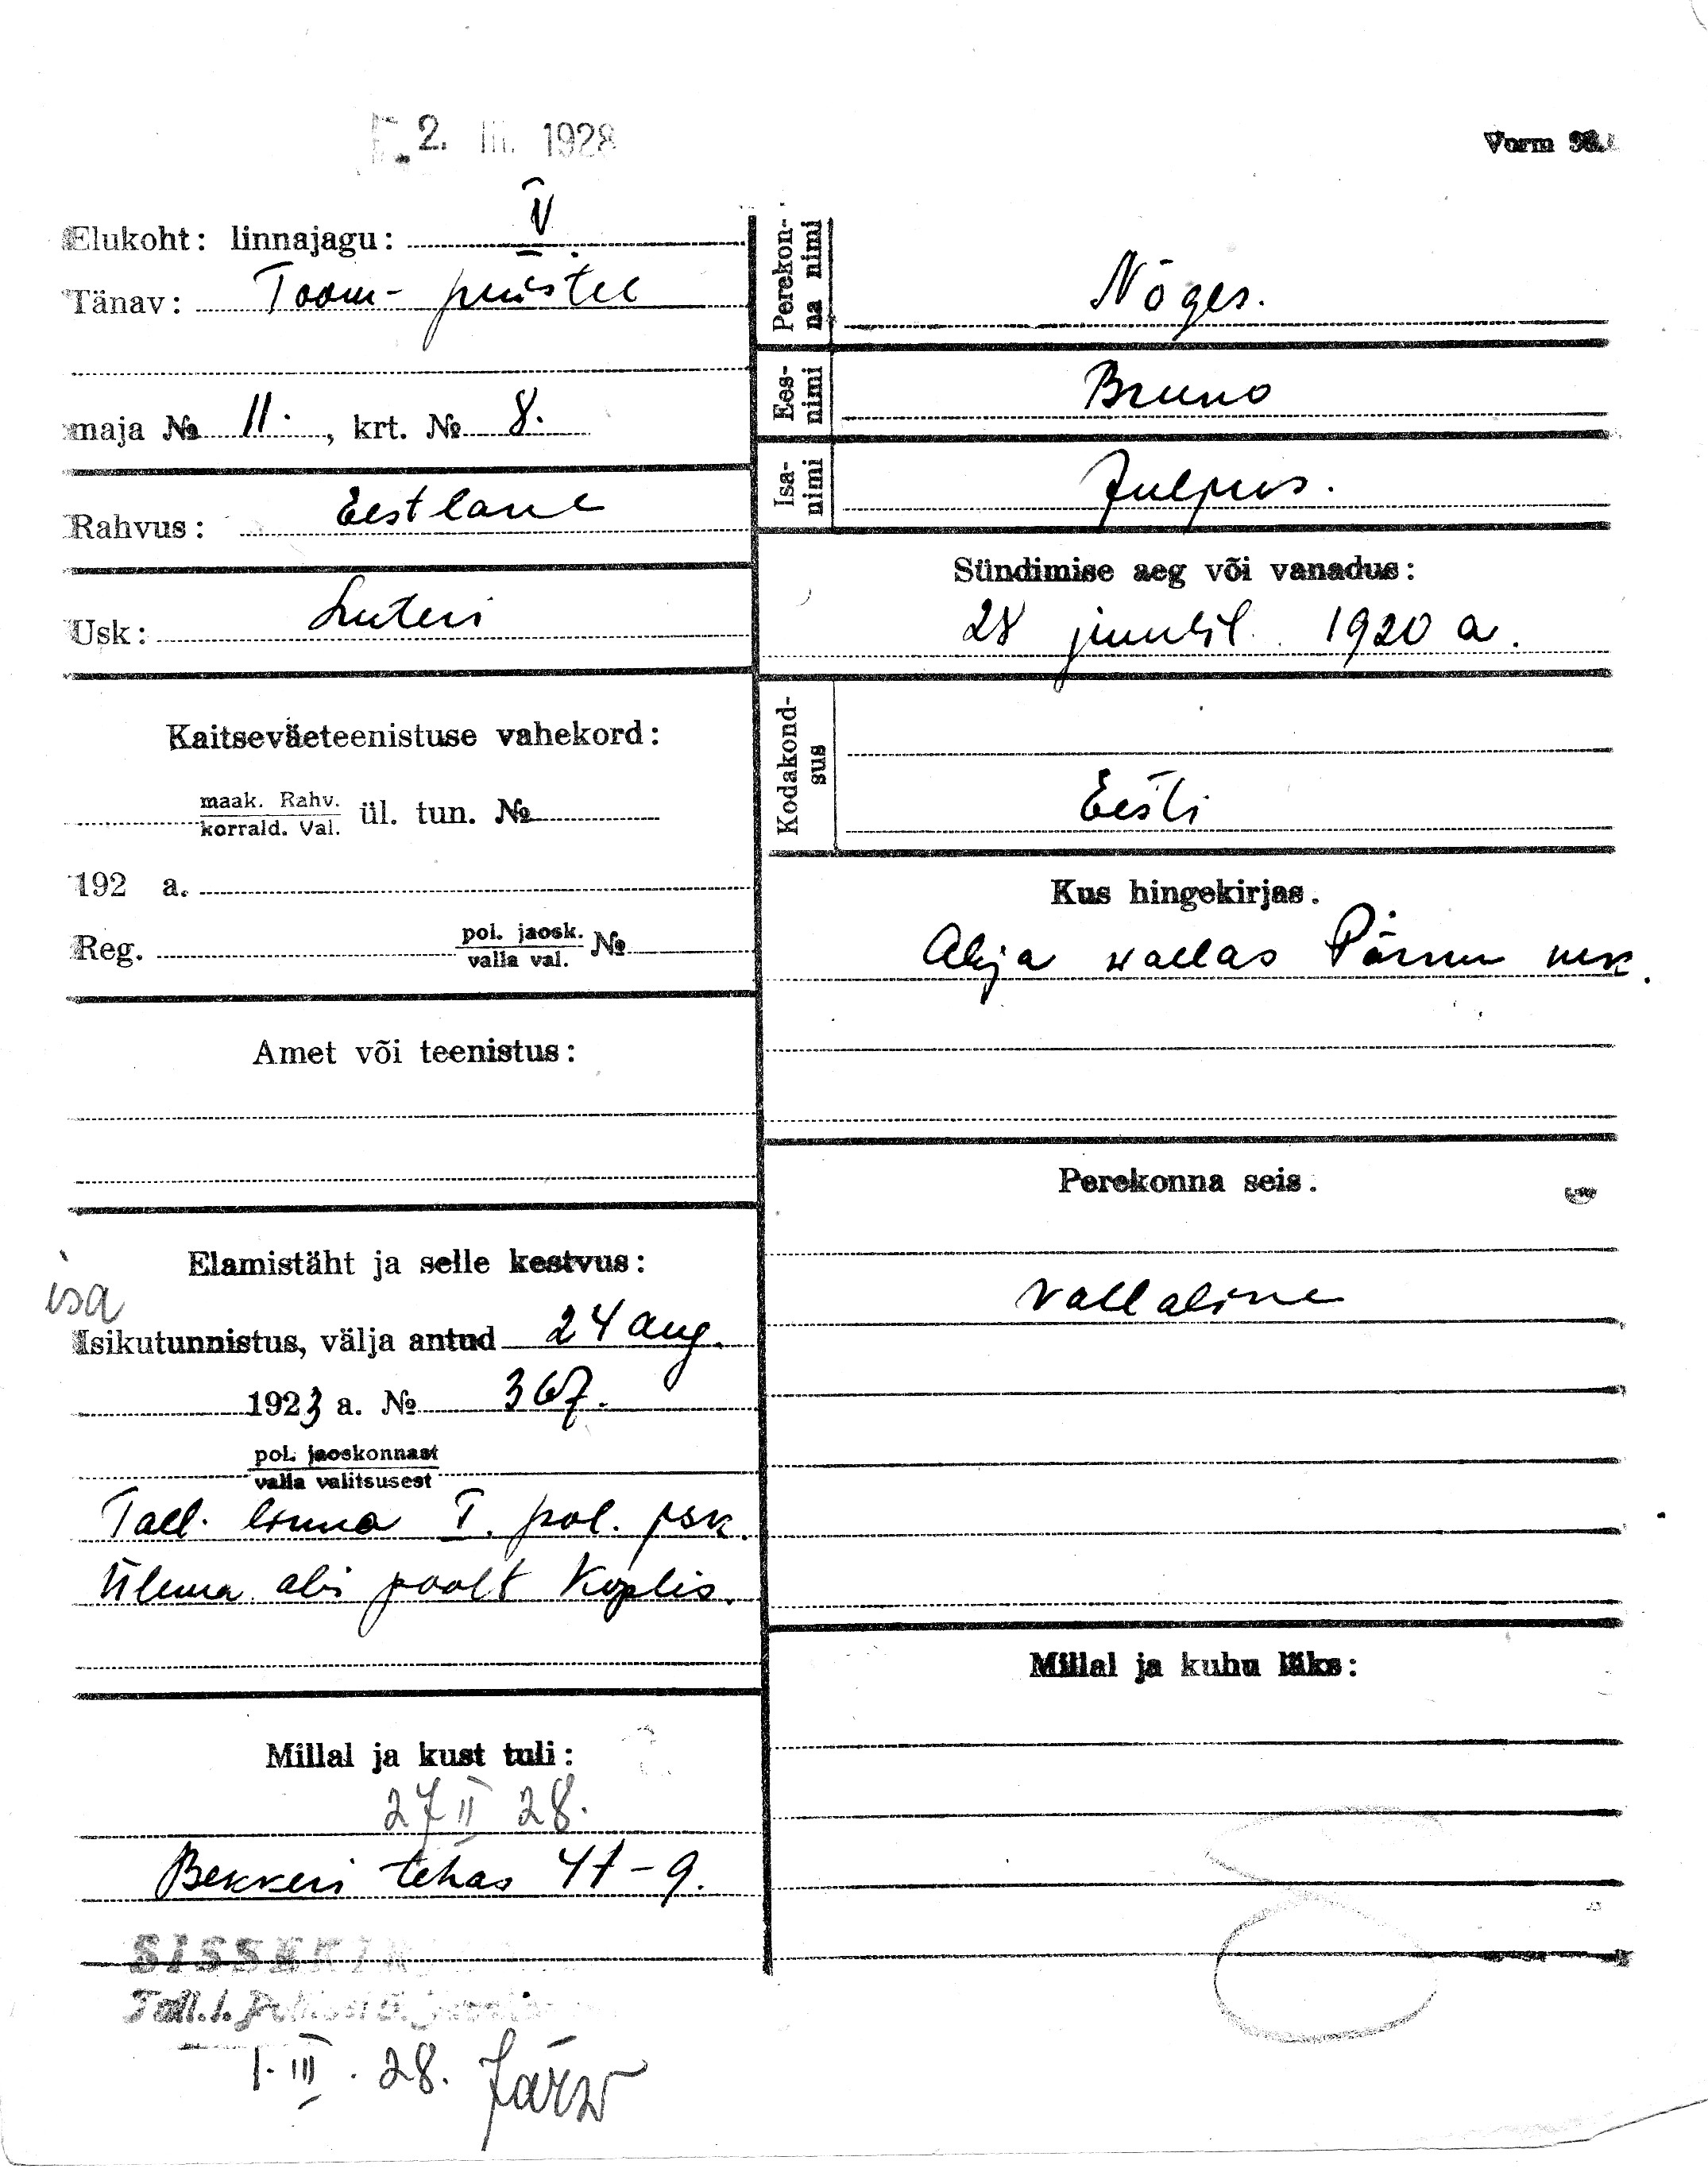 2. III. 1928
Vorm
Elukoht: linnajagu: V.
Tänav: Toom-puistee
maja № 11. , krt. № 8.
Rahvus: Eestlane
Usk: Luteri
Kaitseväeteenistuse vahekord:
maak. Rahv.
korrald. Val. ül. tun. №
192 a.
Reg. pol. jaosk. №
valla val.
Amet või teenistus:
Elamistäht ja selle kestvus:
isa
Isikutunnistus, välja antud 24 aug.
1923 a. № 367.
pol. jaoskonnast
valla valitsusest
Tall. linna I. pol. jsk.
Ülema abi poolt Koplis.
Millal ja kust tuli:
27 II 28.
Bekkeri tehas 41-9.
Tall. l.
1. III. 28. Järw
Perekon-
na nimi
Nõges.
Ees-
nimi
Bruno
Isa-
nimi
Juljus.
Sündimise aeg või vanadus:
28 juulil 1920 a.
Kodakond-
sus
Eesti
Kus hingekirjas.
Abja wallas Pärnu mk.
Perekonna seis.
vallaline
Millal ja kuhu läks: